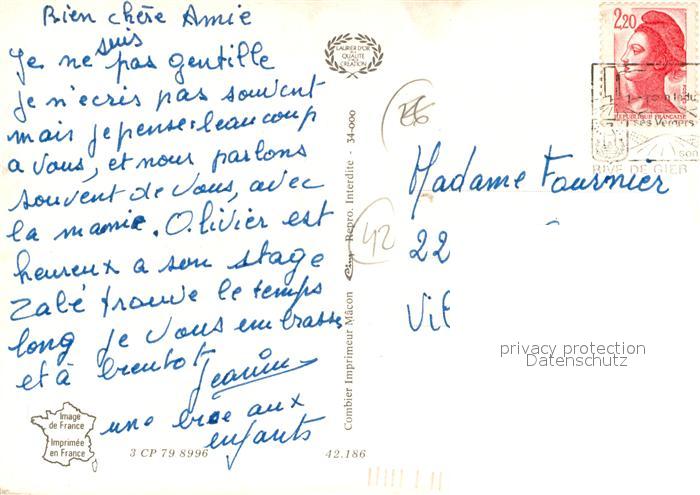 Bien chère Amie
suis
Je ne pas gentille
je n'ecris pas souvent
mais je pense beaucoup
a vous, et nous parlons
souvent de vous, avec
la mamie. Olivier est
heureux a son stage
Zabé trouve le temps
long je vous embrasse
et à bientot
Jeanine
une bise aux
enfants
Image
de France
Imprimée
en France
3 CP 79 8996
42.186
LAURIER D'OR
DE LA QUALITÉ
CREATION
Combier Imprimeur Mâcon Repro. Interdite - 34-000
42
2,20
REPUBLIQUE FRANÇAISE
ses Vergers
son
RIVE DE GIER
Madame Fournier
22
Vil
privacy protection
Datenschutz